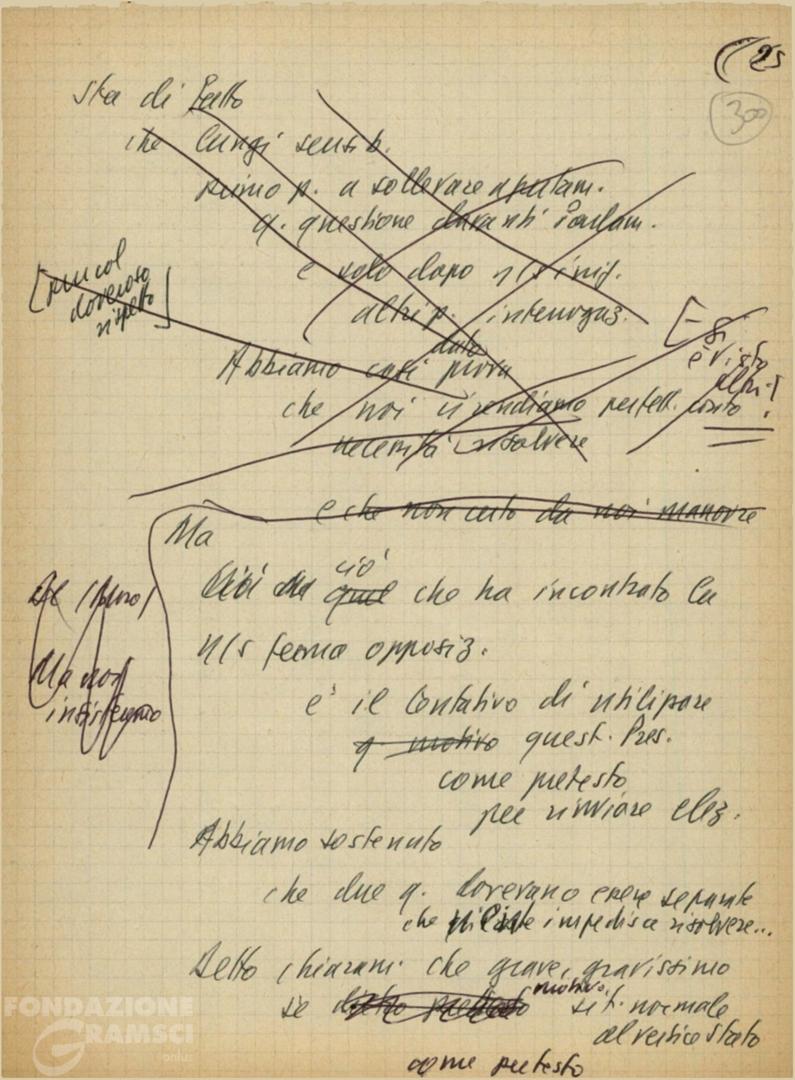 25
300
sta di fatto
che lungi sensib.
primo p. a sollevare apertam.
q. questione davanti Parlam.
e solo dopo n/s inig.
altri p. interrogaz.
[sia col
doveroso
rispetto]
[– si
è visto
altri!
Abbiamo così dato prova
che noi ci rendiamo perfett. conto
necessità risolvere
e che non certo da noi manovre
Ma
ciò che ha incontrato la
n/s ferma opposiz.
Ma non
insistevano
è il tentativo di utilizzare
q. motivo quest. Pres.
come pretesto
per rinviare elez.
Abbiamo sostenuto
che due q. dovevano essere separate
che impedisca risolvere...
Detto chiaram. che grave, gravissimo
se motivo sit. normale
al vertice Stato
come pretesto
FONDAZIONE
GRAMSCI
onlus